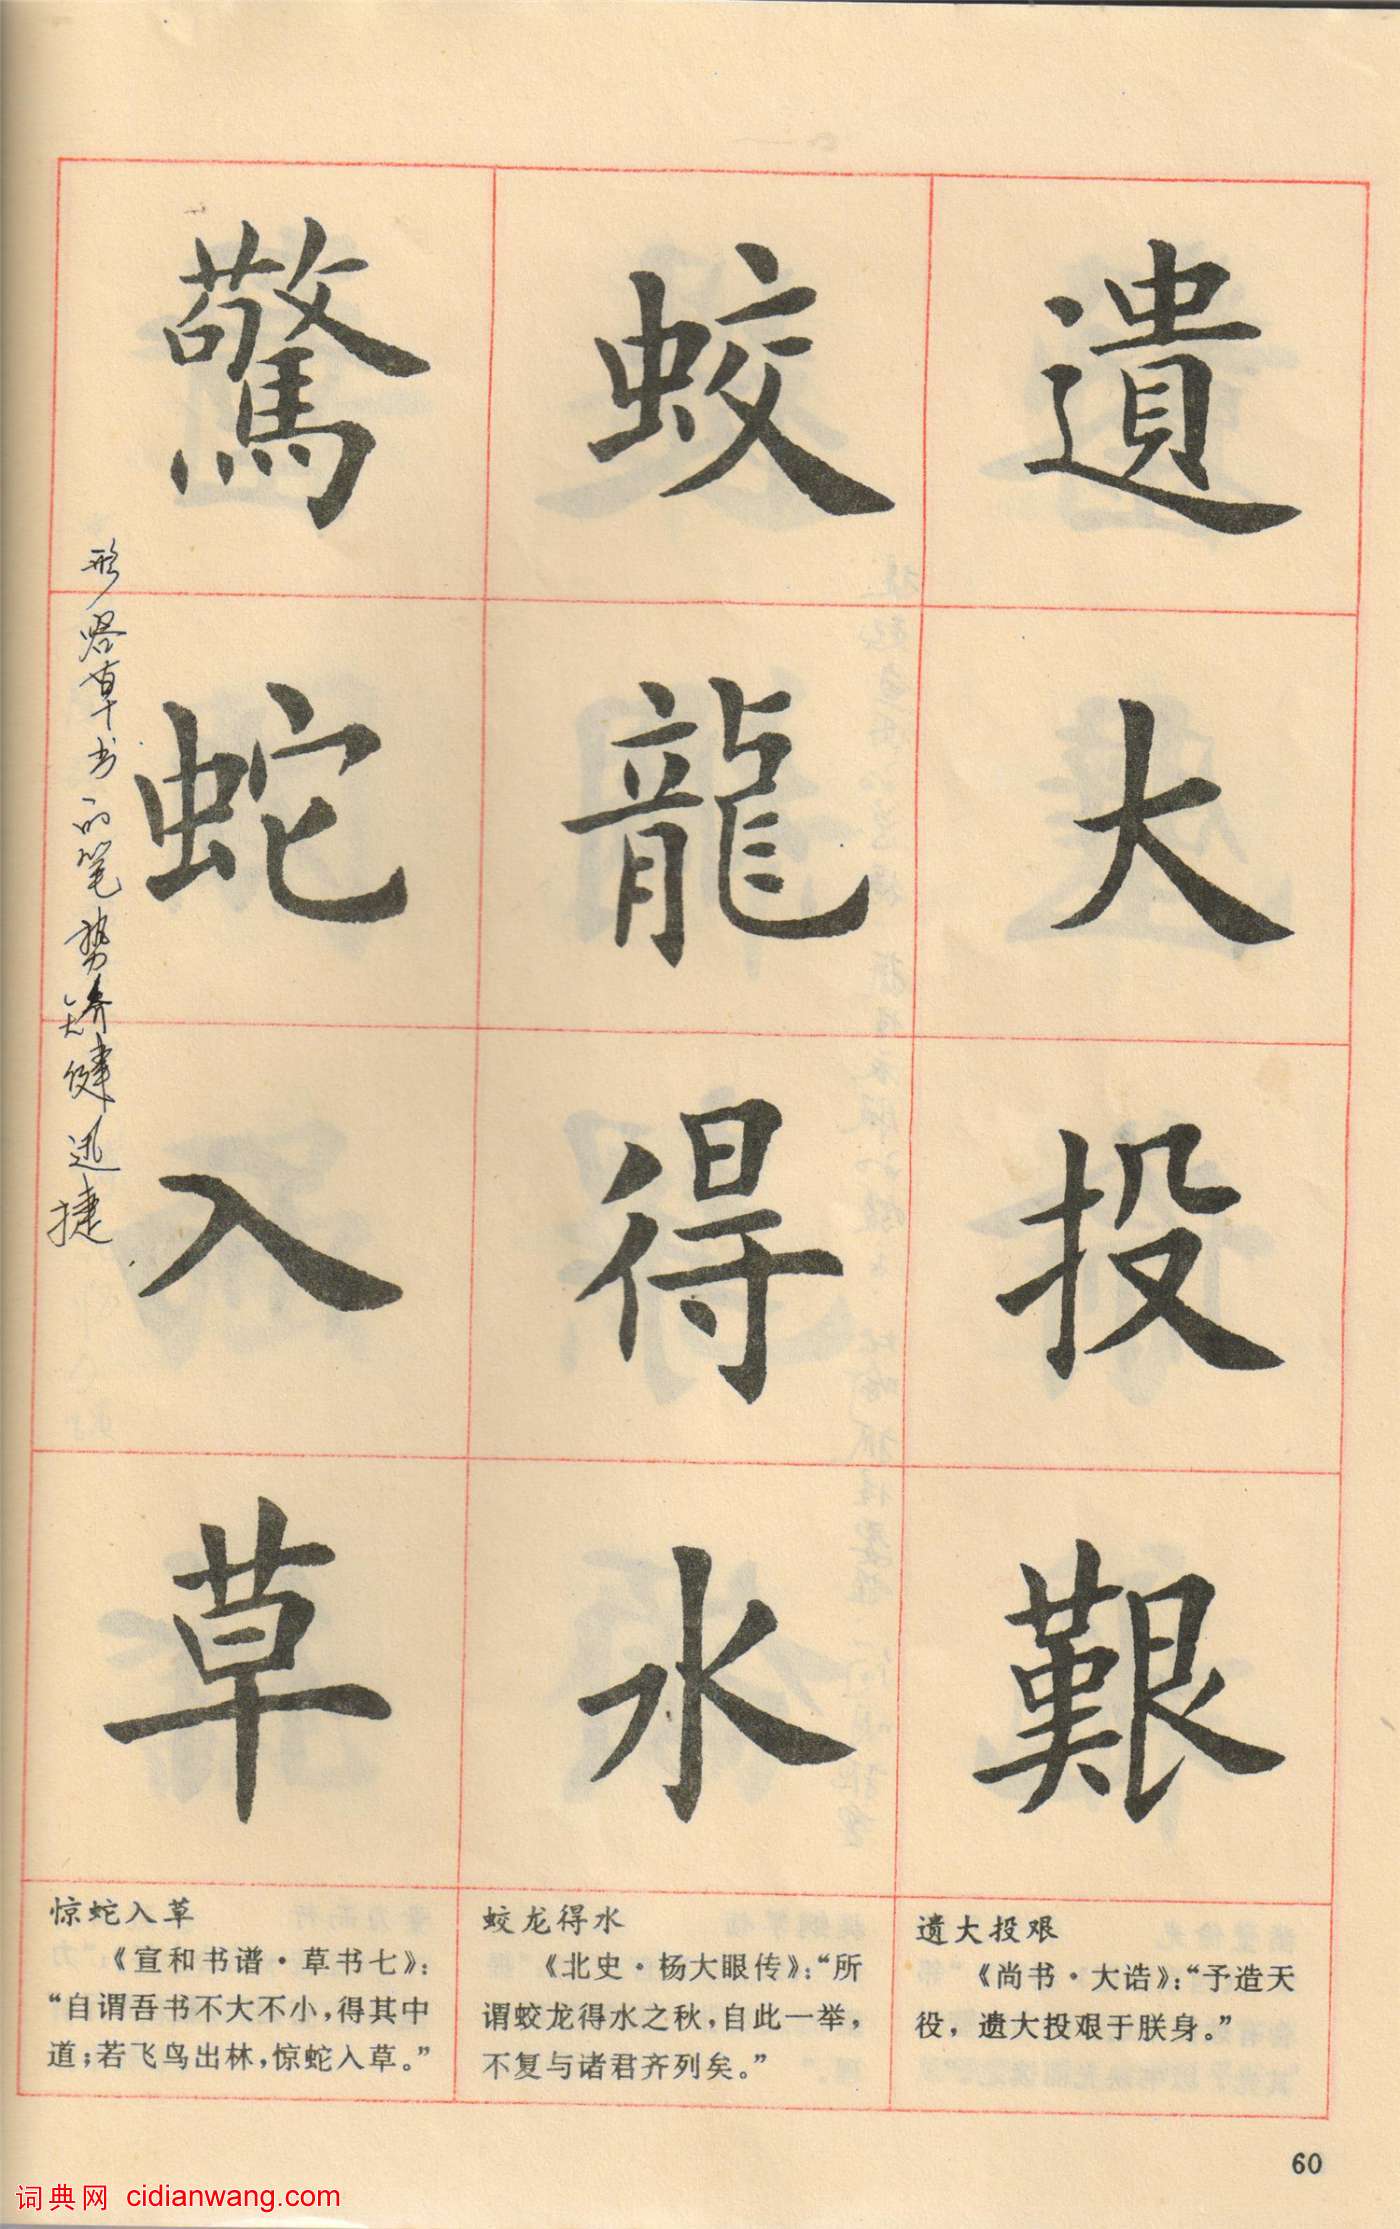 遺大投艱
蛟龍得水
驚蛇入草
形容草书的笔势矫健迅捷
遗大投艰
《尚书·大诰》：“予造天
役，遗大投艰于朕身。”
蛟龙得水
《北史·杨大眼传》：“所
谓蛟龙得水之秋，自此一举，
不复与诸君齐列矣。”
惊蛇入草
《宣和书谱·草书七》：
“自谓吾书不大不小，得其中
道；若飞鸟出林，惊蛇入草。”
60
词典网 cidianwang.com